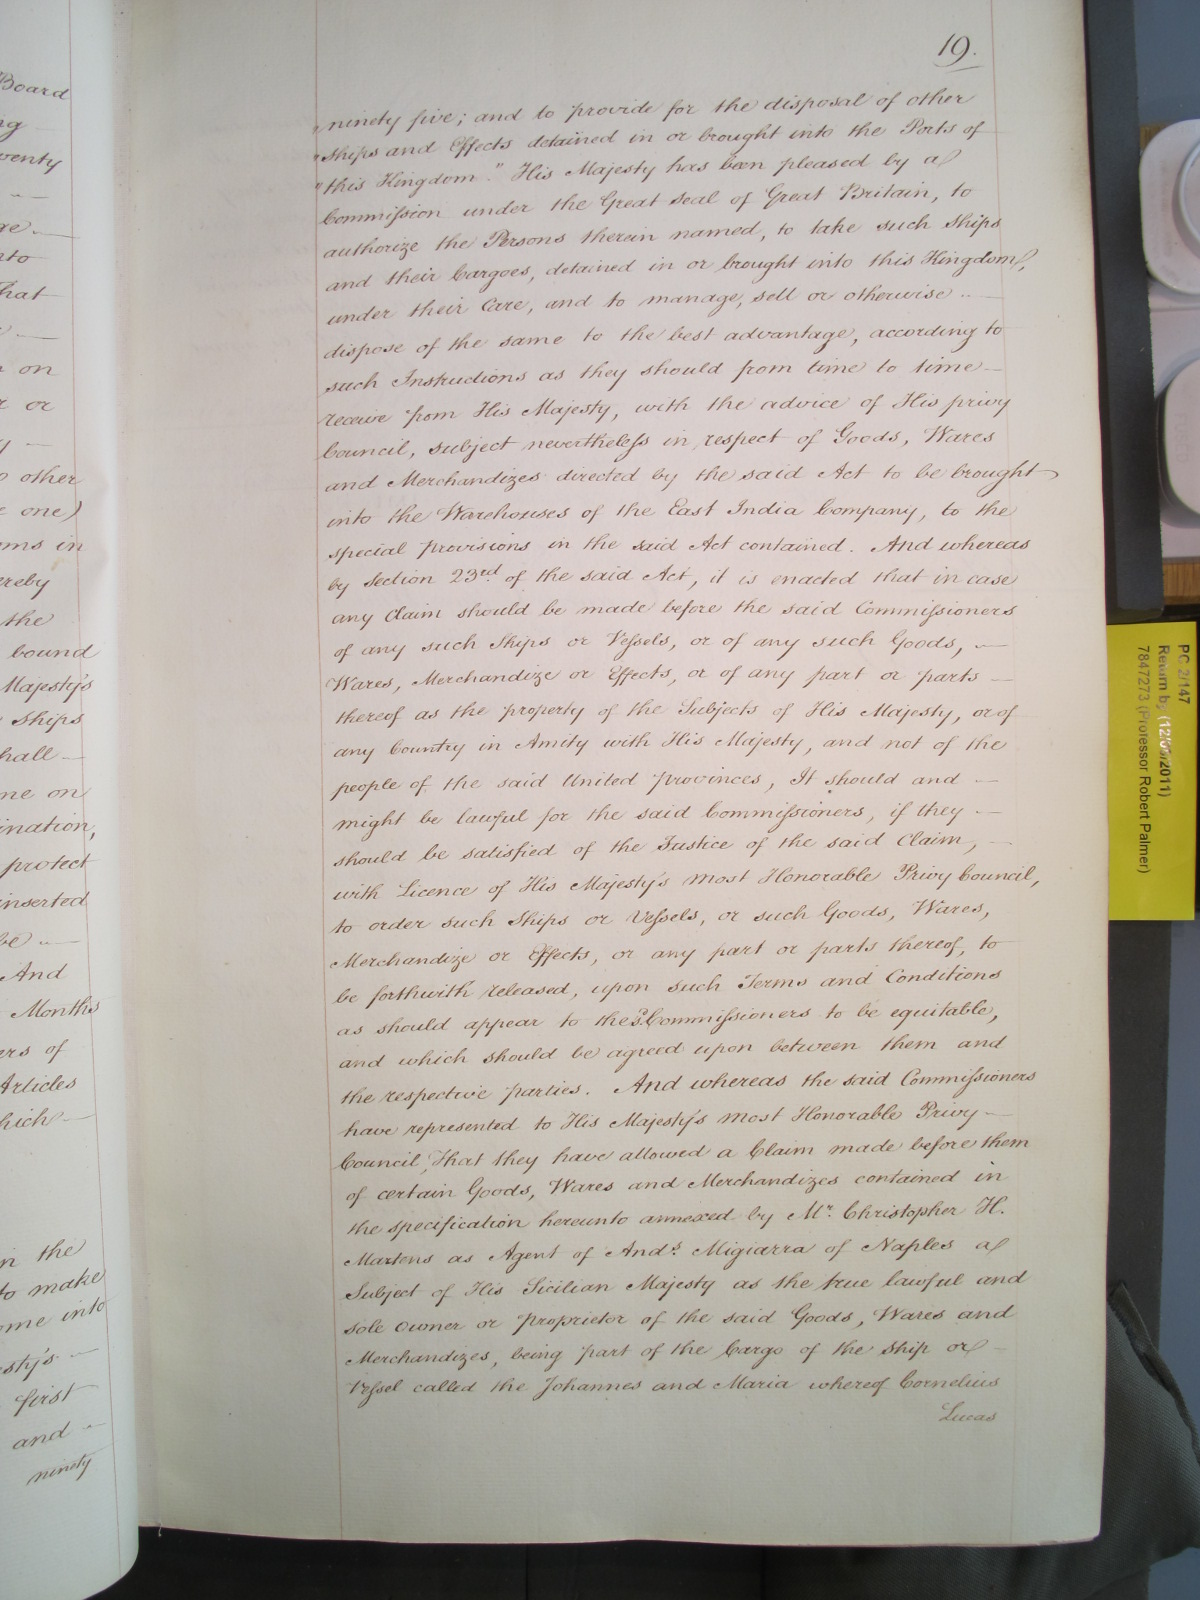 Board
ng
wenty
re.
nto
that
on
or
other
one)
ms in
ereby
the
bound
Majesty's
Ships
hall
me on
ination,
protect
inserted
be
And
Months
ers of
Articles
hich
in the
to make
ome into
esty's
first
and
ninety
19.
"ninety five; and to provide for the disposal of other
"Ships and Effects detained in or brought into the Ports of
"this Kingdom." His Majesty has been pleased by a
Commission under the Great Seal of Great Britain, to
authorize the Persons therein named, to take such Ships
and their Cargoes, detained in or brought into this Kingdom,
under their Care, and to manage, sell or otherwise
dispose of the same to the best advantage, according to
such Instructions as they should from time to time
receive from His Majesty, with the advice of His privy
Council, subject nevertheless in respect of Goods, Wares
and Merchandizes directed by the said Act to be brought
into the Warehouses of the East India Company, to the
special provisions in the said Act contained. And whereas
by Section 23rd of the said Act, it is enacted that in case
any Claim should be made before the said Commissioners
of any such Ships or Vessels, or of any such Goods,
Wares, Merchandize or Effects, or of any part or parts
thereof as the property of the Subjects of His Majesty, or of
any Country in Amity with His Majesty, and not of the
people of the said United provinces, It should and
might be lawful for the said Commissioners, if they
should be satisfied of the Justice of the said Claim,
with Licence of His Majesty's most Honorable Privy Council,
to order such Ships or Vessels, or such Goods, Wares,
Merchandize or Effects, or any part or parts thereof, to
be forthwith released, upon such Terms and Conditions
as should appear to the sd. Commissioners to be equitable,
and which should be agreed upon between them and
the respective parties. And whereas the said Commissioners
have represented to His Majesty's most Honorable Privy
Council, that they have allowed a Claim made before them
of certain Goods, Wares and Merchandizes contained in
the specification hereunto annexed by Mr. Christopher H.
Martens as Agent of Ands. Migiarra of Naples a
Subject of His Sicilian Majesty as the true lawful and
sole Owner or Proprietor of the said Goods, Wares and
Merchandizes, being part of the Cargo of the Ship or
Vessel called the Johannes and Maria whereof Cornelius
Lucas
PC 2/147
Return by (12/09/2011)
7847273 (Professor Robert Palmer)